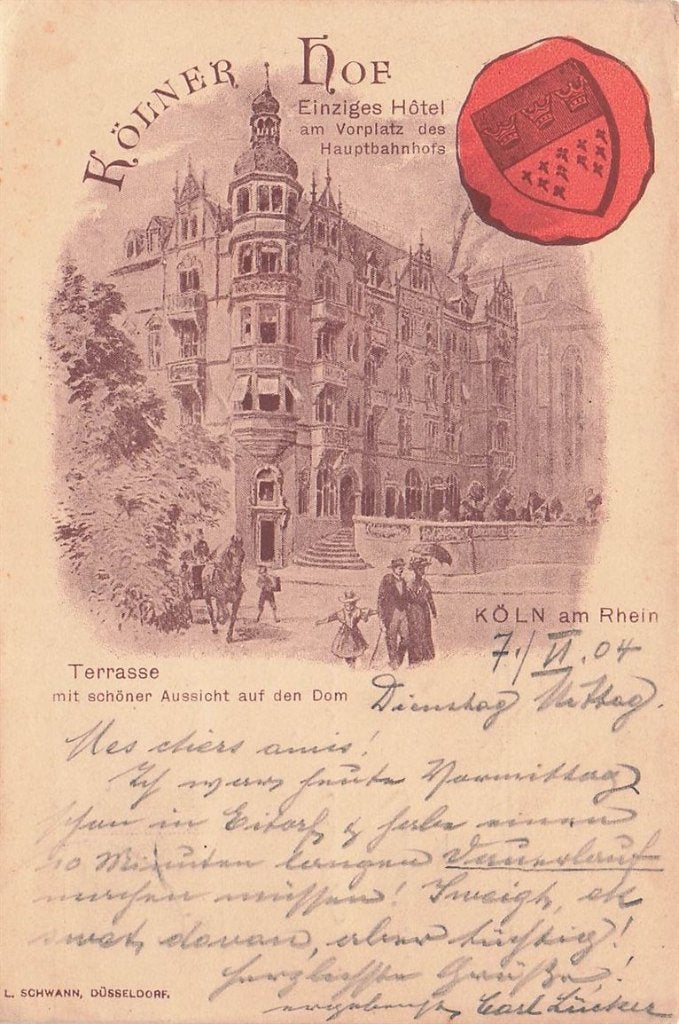 KÖLNER HOF
Einziges Hôtel
am Vorplatz des
Hauptbahnhofs
KÖLN am Rhein
7./VI.04
Terrasse
mit schöner Aussicht auf den Dom
Dienstag Mittag.
Mes chers amis!
Ich war heute Vormittag
schon in Eitorf & habe einen
10 Minuten langen Dauerlauf
machen müssen!
davon, aber tüchtig!
herzlichste Grüße!
ergebenst Carl Lücker
L. SCHWANN, DÜSSELDORF.